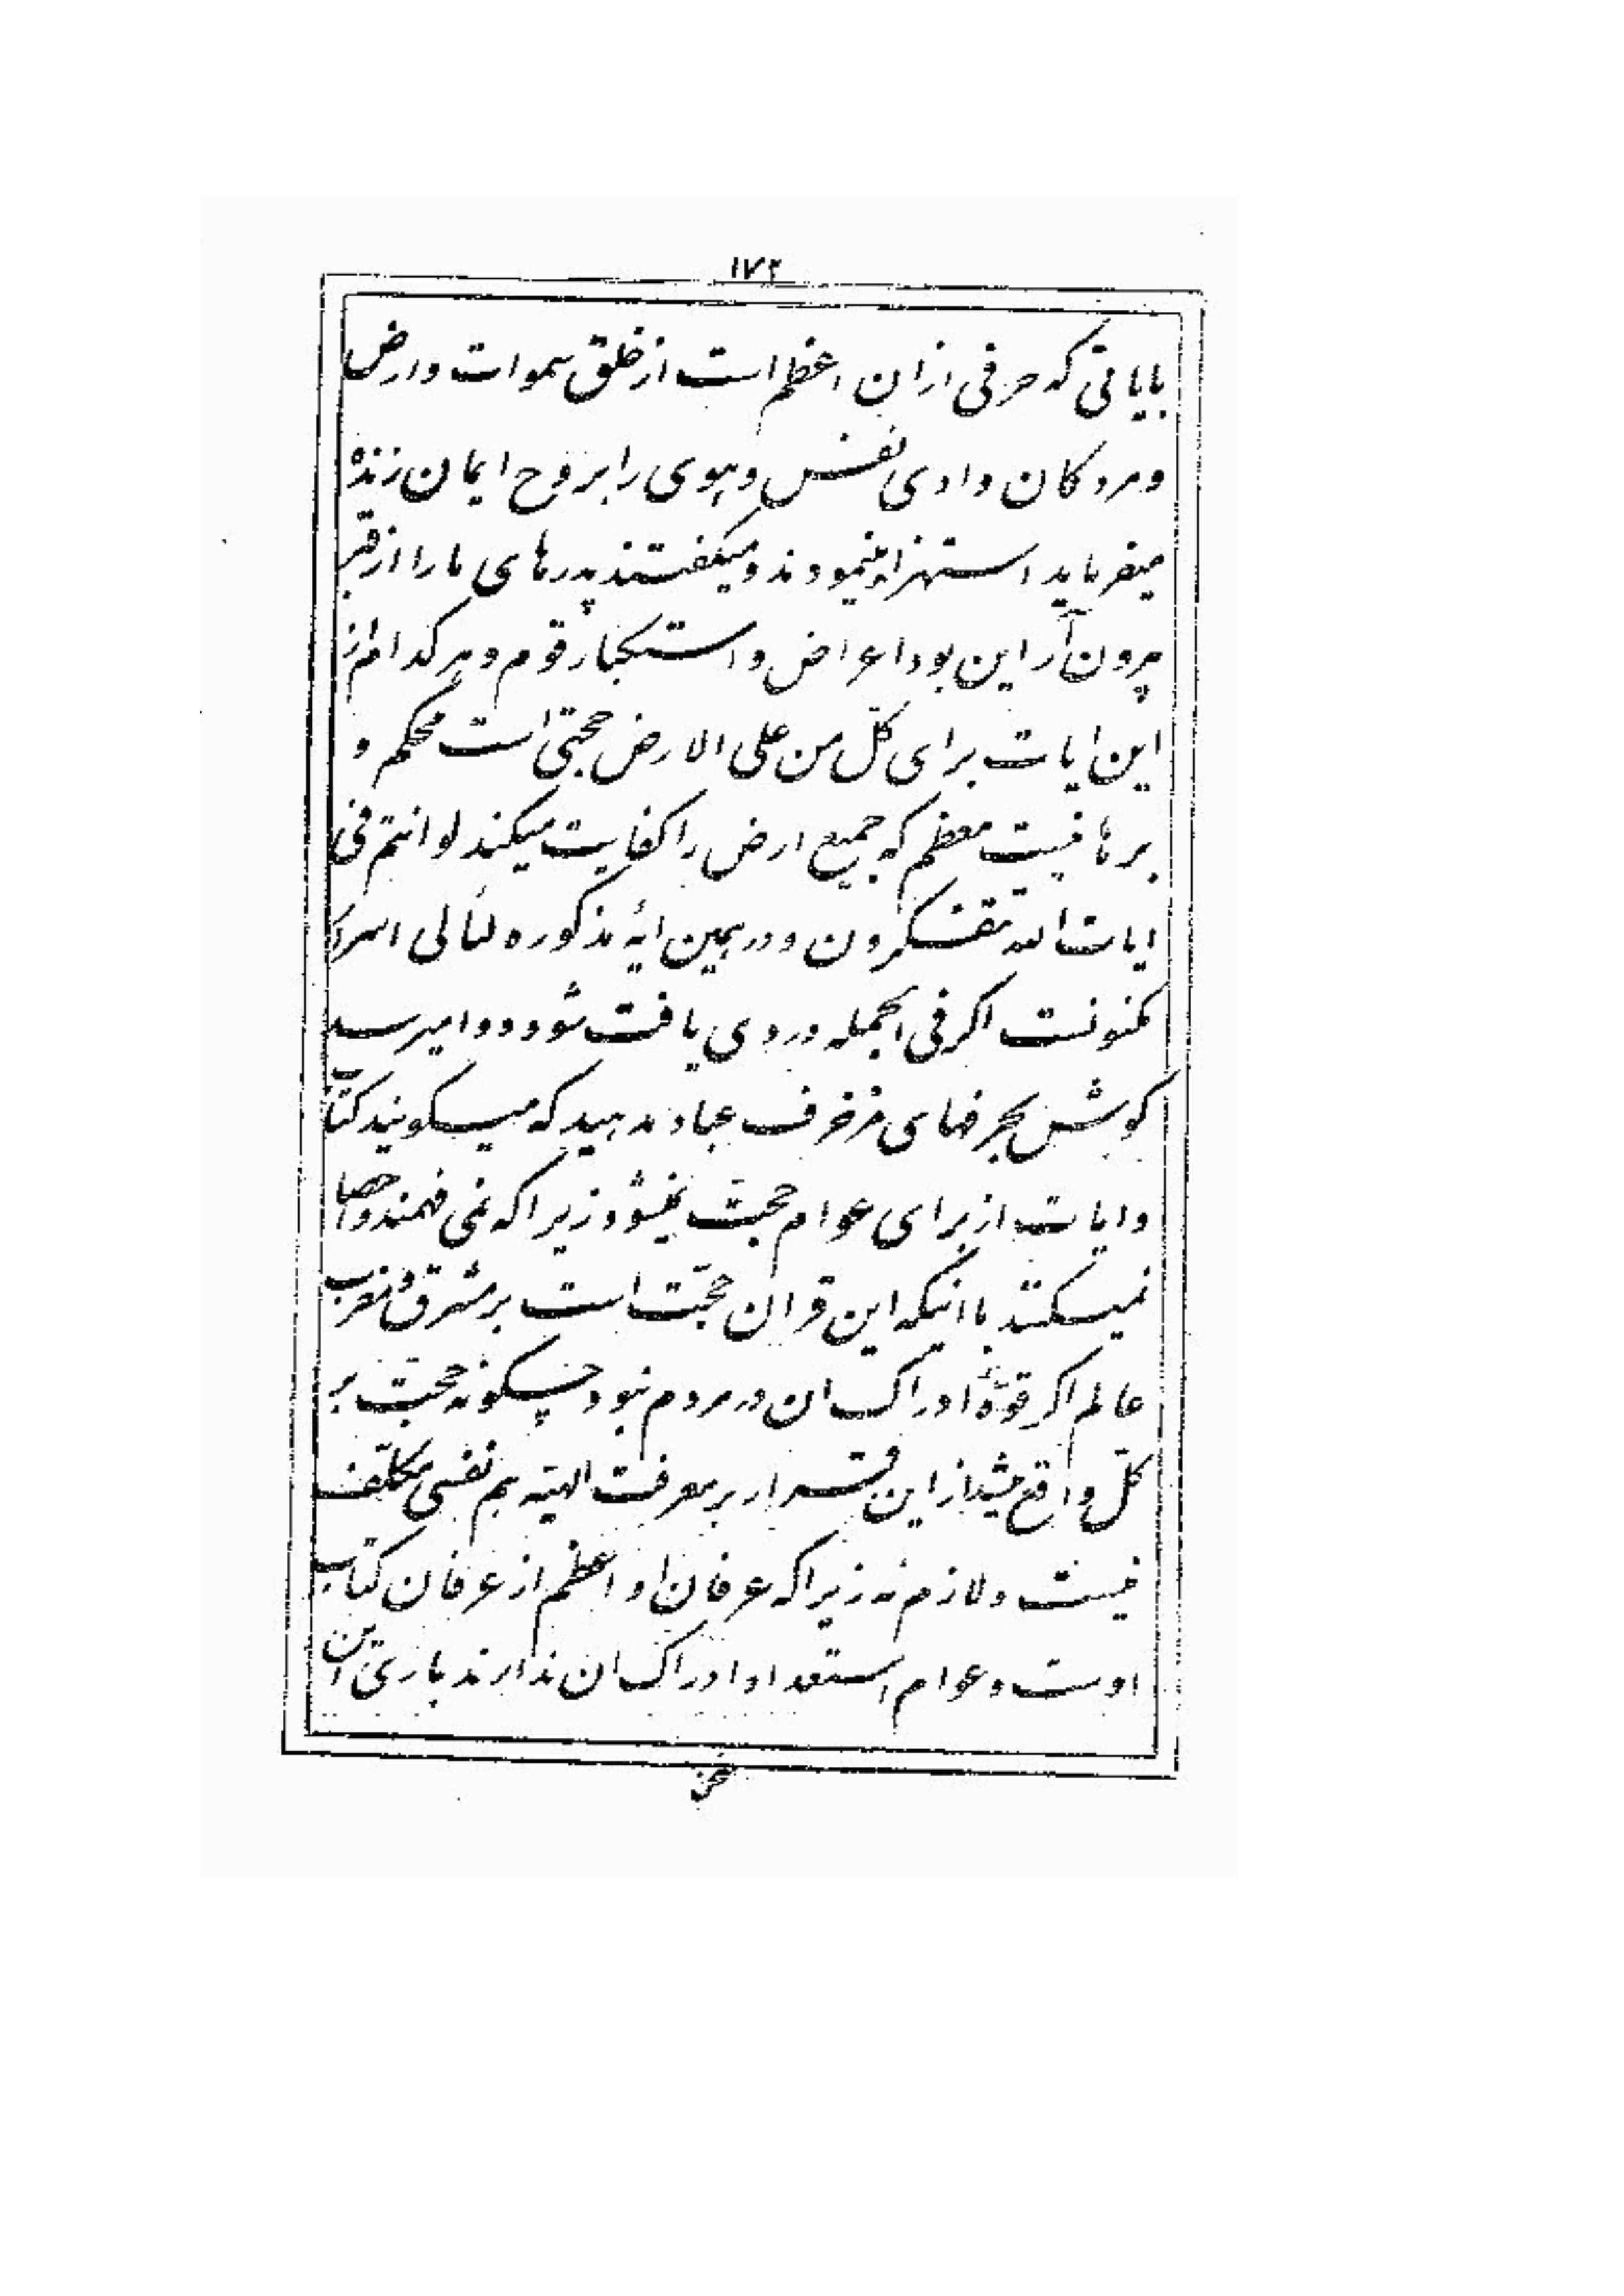 ١٧٢
باياتى كه حرفى ازان اعظم است از خلق سموات وارض
ومردكان وادى نفس وهوى را بروح ايمان زنده
ميفرمايد استهزاء مينمودند وميكفتند پدرهاى مارا از قبر
بيرون آر اين بود اعراض واستكبار قوم وهر كدام از
اين ايات براى كلّ من على الارض حجتى است محكم و
برهانيست معظم كه جميع ارض را كفايت ميكند لو انتم فى
ايات الله تتفكرون ودر همين ايهٔ مذكوره لئالى اسرار
مكنونست اكر فى الجمله دردى يافت شود دوا ميرسد
كوش بحرفهاى مزخرف عباد مدهيد كه ميكويند كتاب
وايات از براى عوام حجت نميشود زيرا كه نمى فهمند واحصا
نميكنند با اينكه اين قران حجّت است بر مشرق ومغرب
عالم اكر قوّهٔ ادراك ان در مردم نبود چكونه حجّت بر
كلّ واقع ميشد از اين قرار بر معرفت الهيّه هم نفسى مكلّف
نيست ولازم نه زيرا كه عرفان او اعظم از عرفان كتاب
اوست وعوام استعداد ادراك ان ندارند بارى اين
سخن